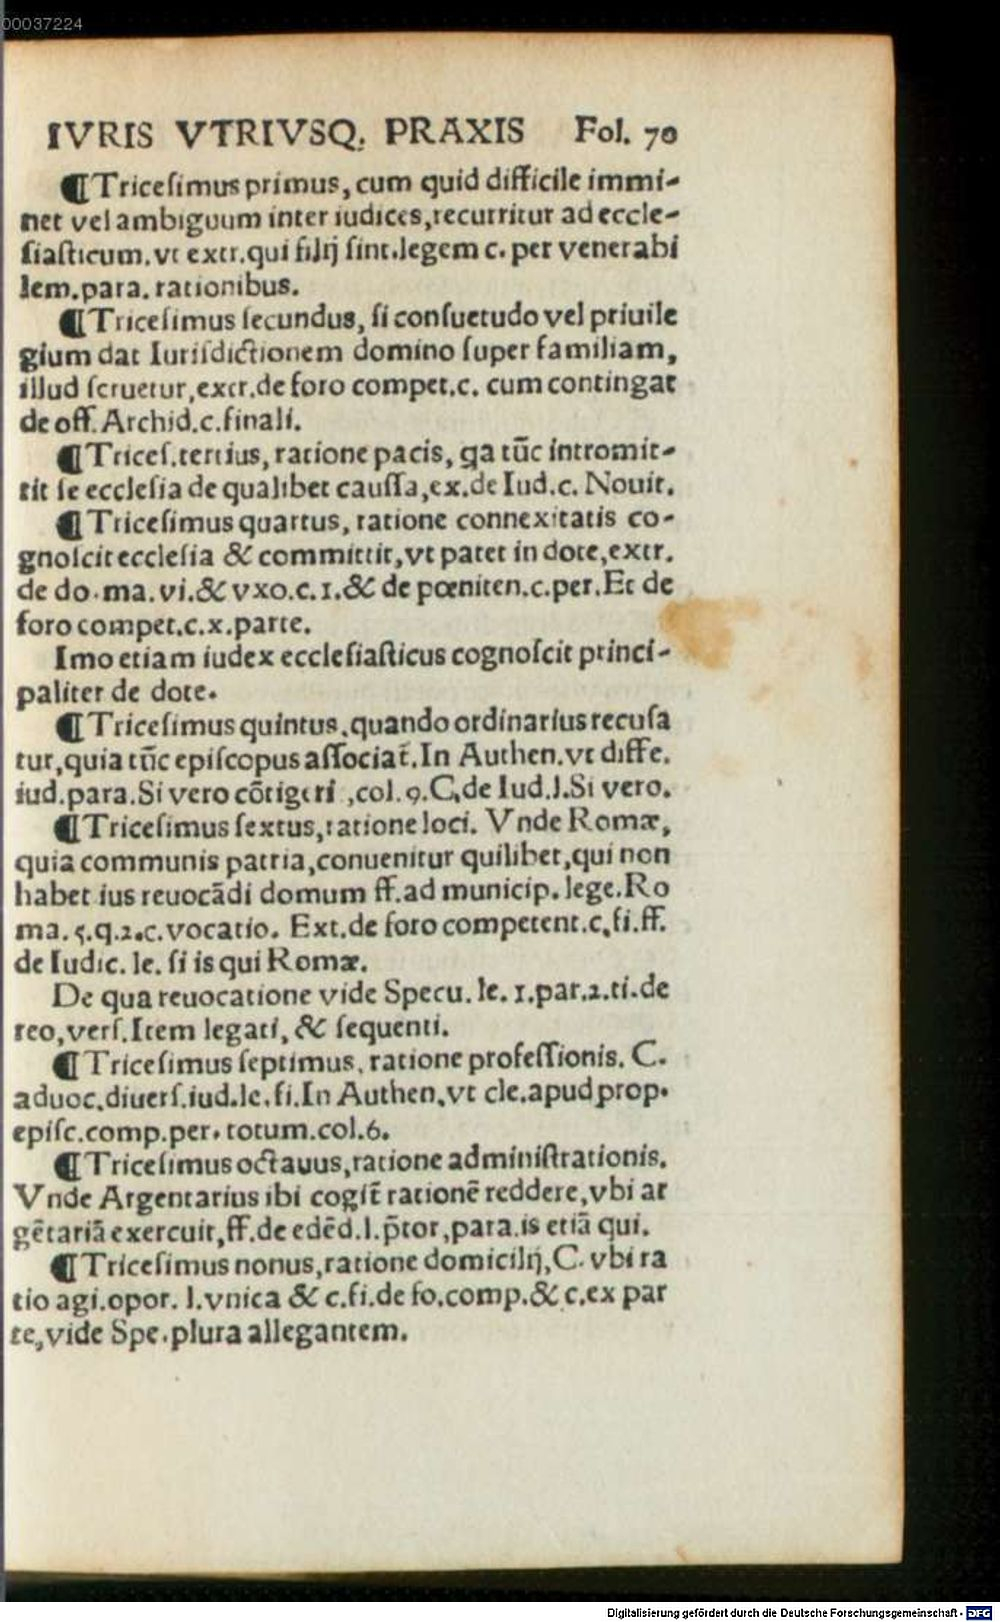 00037224
IVRIS VTRIVSQ. PRAXIS Fol. 70
¶Triceſimus primus, cum quid difficile immi-
net vel ambiguum inter iudices, recurritur ad eccle-
ſiaſticum. vt extr. qui filij ſint. legem c. per venerabi
lem. para. rationibus.
¶Triceſimus ſecundus, ſi conſuetudo vel priuile
gium dat Iuriſdictionem domino ſuper familiam,
illud ſeruetur, extr. de foro compet. c. cum contingat
de off. Archid. c. finali.
¶Triceſ. tertius, ratione pacis, qa tūc intromit-
tit ſe eccleſia de qualibet cauſſa, ex. de Iud. c. Nouit.
¶Triceſimus quartus, ratione connexitatis co-
gnoſcit eccleſia & committit, vt patet in dote, extr.
de do. ma. vi. & vxo. c. 1. & de pœniten. c. per. Et de
foro compet. c. x. parte.
Imo etiam iudex eccleſiaſticus cognoſcit princi-
paliter de dote.
¶Triceſimus quintus, quando ordinarius recuſa
tur, quia tūc epiſcopus aſſociat̄. In Authen. vt diffe.
iud. para. Si vero cōtigeri, col. 9. C. de Iud. l. Si vero.
¶Triceſimus ſextus, ratione loci. Vnde Romæ,
quia communis patria, conuenitur quilibet, qui non
habet ius reuocādi domum ff. ad municip. lege. Ro
ma. 5. q. 2. c. vocatio. Ext. de foro competent. c. fi. ff.
de Iudic. le. ſi is qui Romæ.
De qua reuocatione vide Specu. le. 1. par. 2. ti. de
reo, verſ. Item legati, & ſequenti.
¶Triceſimus ſeptimus, ratione profeſſionis. C.
aduoc. diuerſ. iud. le. fi. In Authen. vt cle. apud prop.
epiſc. comp. per. totum. col. 6.
¶Triceſimus octauus, ratione adminiſtrationis.
Vnde Argentarius ibi cogit̄ rationē reddere, vbi ar
gētariā exercuit, ff. de edēd. l. p̄tor, para. is etiā qui.
¶Triceſimus nonus, ratione domicilij, C. vbi ra
tio agi. opor. l. vnica & c. fi. de fo. comp. & c. ex par
te, vide Spe. plura allegantem.
Digitalisierung gefördert durch die Deutsche Forschungsgemeinschaft - DFG